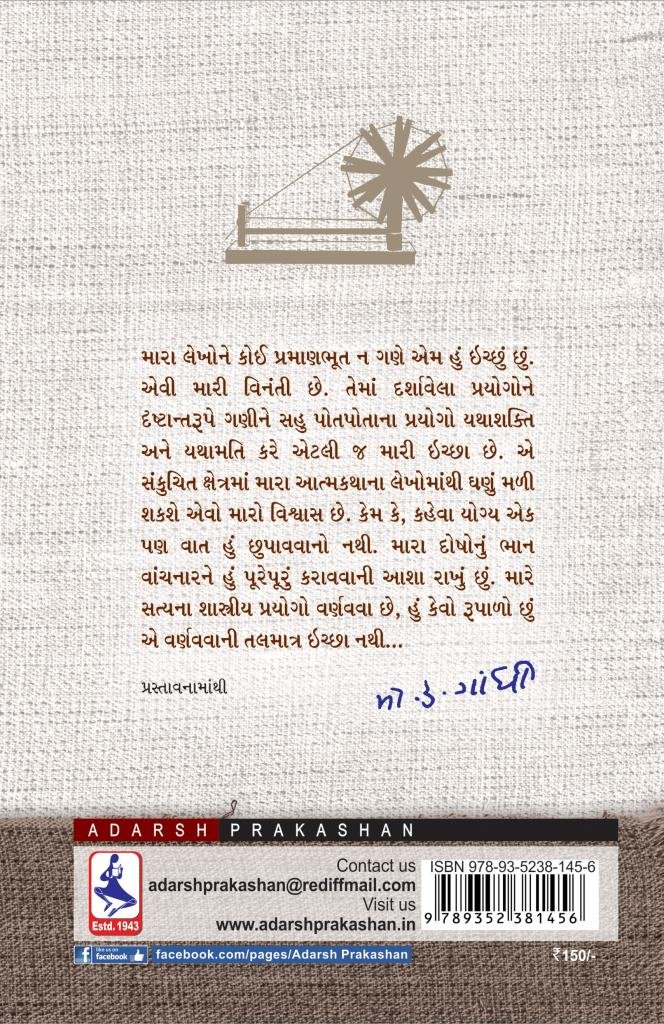 મારા લેખોને કોઈ પ્રમાણભૂત ન ગણે એમ હું ઇચ્છું છું.
એવી મારી વિનંતી છે. તેમાં દર્શાવેલા પ્રયોગોને
દૃષ્ટાન્તરૂપે ગણીને સહુ પોતપોતાના પ્રયોગો યથાશક્તિ
અને યથામતિ કરે એટલી જ મારી ઇચ્છા છે. એ
સંકુચિત ક્ષેત્રમાં મારા આત્મકથાના લેખોમાંથી ઘણું મળી
શકશે એવો મારો વિશ્વાસ છે. કેમ કે, કહેવા યોગ્ય એક
પણ વાત હું છુપાવવાનો નથી. મારા દોષોનું ભાન
વાંચનારને હું પૂરેપૂરું કરાવવાની આશા રાખું છું. મારે
સત્યના શાસ્ત્રીય પ્રયોગો વર્ણવવા છે, હું કેવો રૂપાળો છું
એ વર્ણવવાની તલમાત્ર ઇચ્છા નથી...
પ્રસ્તાવનામાંથી
મો. ક. ગાંધી
ADARSH PRAKASHAN
Contact us
adarshprakashan@rediffmail.com
Visit us
www.adarshprakashan.in
Estd. 1943
ISBN 978-93-5238-145-6
9 789352 381456
like us on
facebook
facebook.com/pages/Adarsh Prakashan
₹150/-